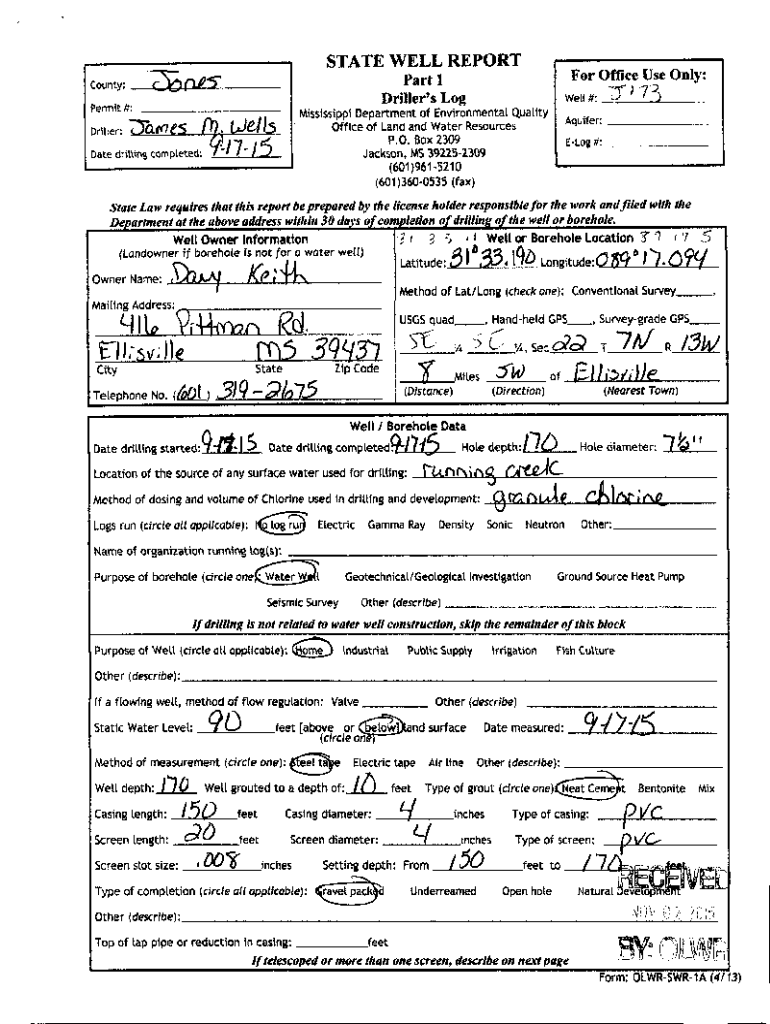 STATE WELL REPORT
Part 1
Driller's Log
Mississippi Department of Environmental Quality
Office of Land and Water Resources
P.O. Box 2309
Jackson, MS 39225-2309
(601)961-5210
(601)360-0535 (fax)
County: Jones
Permit #:
Driller: James M. Wells
Date drilling completed: 9-17-15
For Office Use Only:
Well #: J173
Aquifer:
E-Log #:
State Law requires that this report be prepared by the license holder responsible for the work and filed with the
Department at the above address within 30 days of completion of drilling of the well or borehole.
Well Owner Information
(Landowner if borehole is not for a water well)
Owner Name: Davy Keith
Mailing Address:
416 Pittman Rd.
Ellisville MS 39437
City State Zip Code
Telephone No. (601) 319-2675
Well or Borehole Location
Latitude: 31°33.190 Longitude: 089°17.094
Method of Lat/Long (check one): Conventional Survey______,
USGS quad_____, Hand-held GPS____, Survey-grade GPS____
SE ¼ SE ¼, Sec 22 T 7N R 13W
8 Miles SW of Ellisville
(Distance) (Direction) (Nearest Town)
Well / Borehole Data
Date drilling started: 9-17-15 Date drilling completed: 9-17-15 Hole depth: 170 Hole diameter: 7⅞"
Location of the source of any surface water used for drilling: running creek
Method of dosing and volume of Chlorine used in drilling and development: granule chlorine
Logs run (circle all applicable): No log run Electric Gamma Ray Density Sonic Neutron Other:
Name of organization running log(s):
Purpose of borehole (circle one): Water Well Geotechnical/Geological Investigation Ground Source Heat Pump
Seismic Survey Other (describe)
If drilling is not related to water well construction, skip the remainder of this block
Purpose of Well (circle all applicable): Home Industrial Public Supply Irrigation Fish Culture
Other (describe):
If a flowing well, method of flow regulation: Valve Other (describe)
Static Water Level: 90 feet [above or below] land surface Date measured: 9-17-15
(circle one)
Method of measurement (circle one): Steel tape Electric tape Air line Other (describe):
Well depth: 170 Well grouted to a depth of: 10 feet Type of grout (circle one): Neat Cement Bentonite Mix
Casing length: 150 feet Casing diameter: 4 inches Type of casing: PVC
Screen length: 20 feet Screen diameter: 4 inches Type of screen: PVC
Screen slot size: .008 inches Setting depth: From 150 feet to 170 feet
Type of completion (circle all applicable): Gravel packed Underreamed Open hole Natural Development
RECEIVED
Other (describe):
NOV 02 2015
Top of lap pipe or reduction in casing: feet
BY: OLWR
If telescoped or more than one screen, describe on next page
Form: OLWR-SWR-1A (4/13)